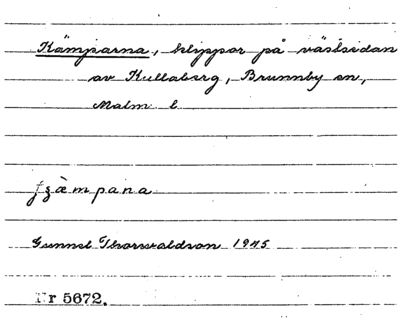 Kämparna, klippor på västsidan
av Kullaberg, Brunnby sn,
Malm l
ʃʒæmpana
Gunnel Thorwaldson 1945
Nr 5672.